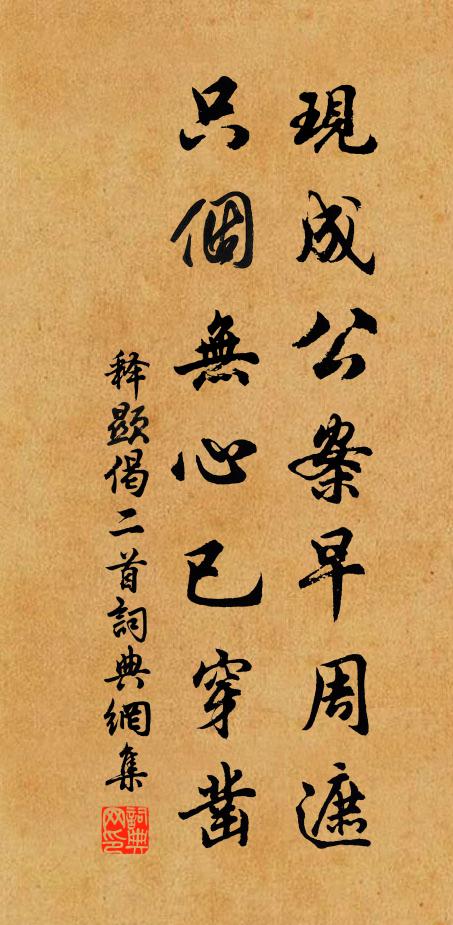 現成公案早周遮
只個無心已穿鑿
释顯偈二首詞典網集
詞典網印